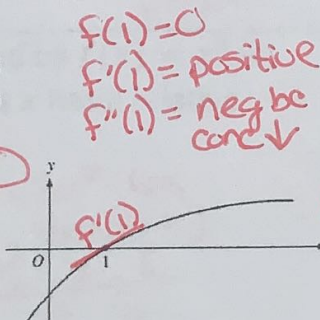 f(1)=0
f'(1)= positive
f"(1)= neg bc
conc ↓
y
f'(1)
O 1